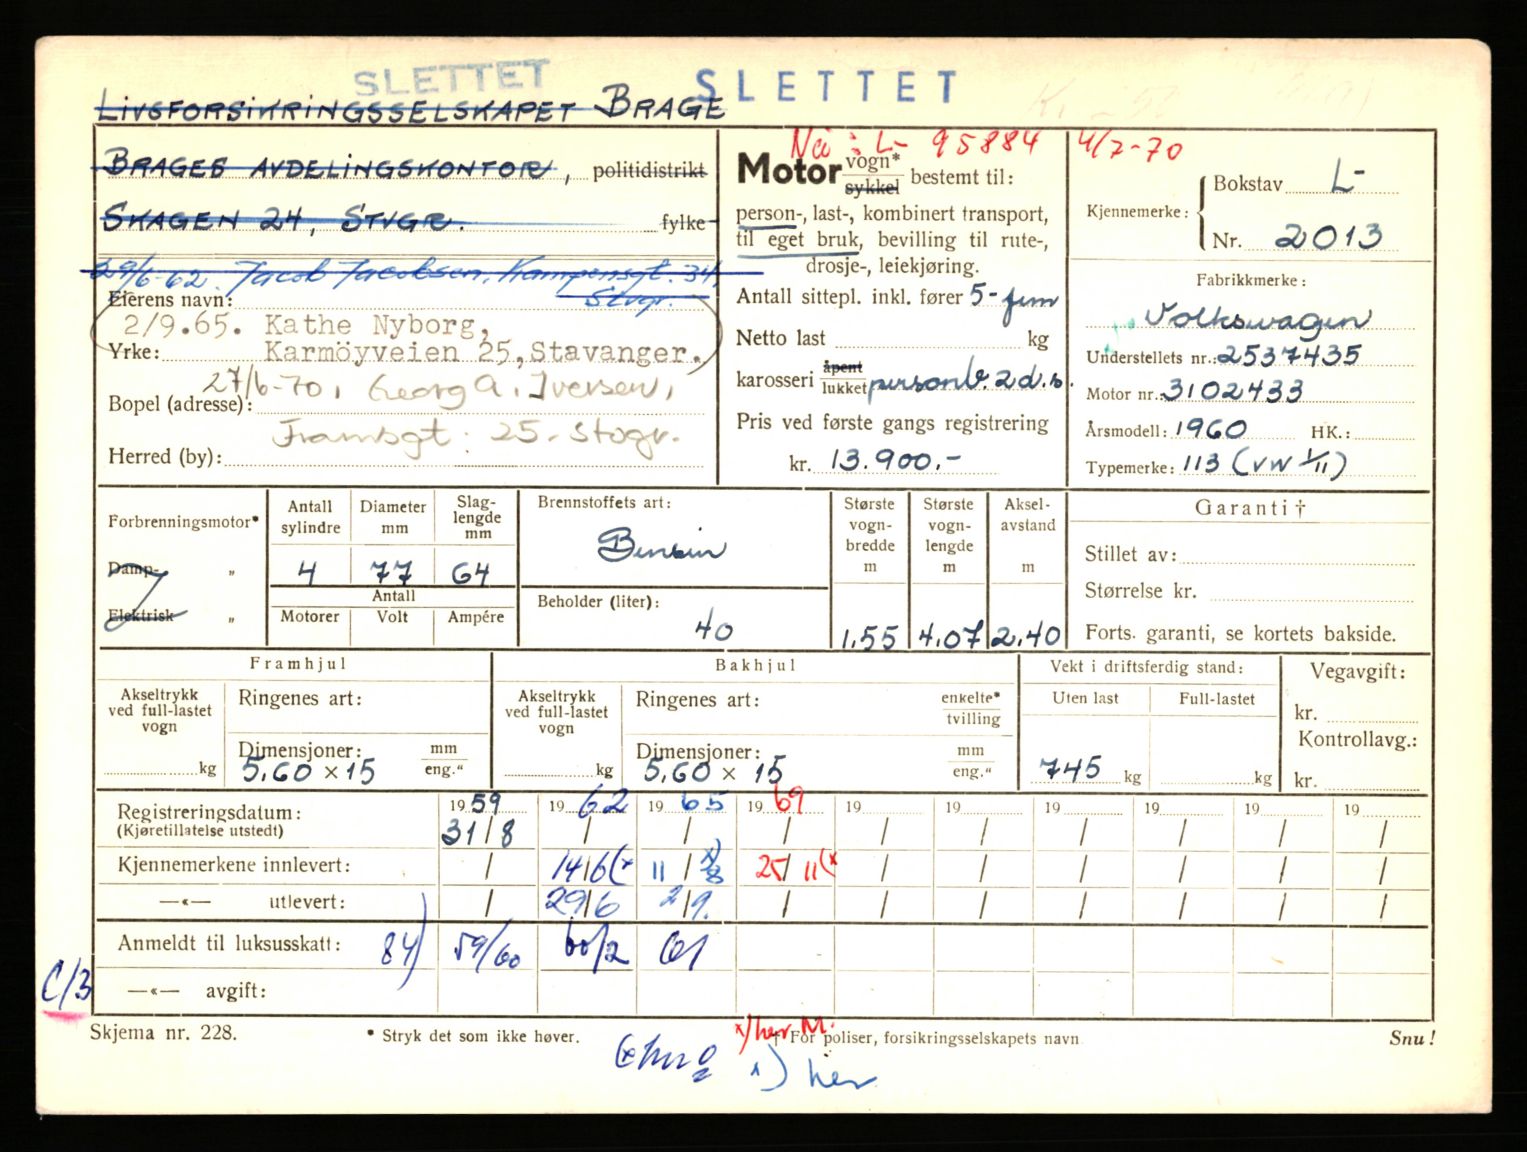 SLETTET SLETTET
LIVSFORSIKRINGSSELSKAPET BRAGE
BRAGES AVDELINGSKONTOR, politidistrikt
SKAGEN 24, STVGR. fylke
29/6-62. Jacob Jacobsen, Kampensgt. 34,
Stvgr.
Eierens navn:
2/9.65. Kathe Nyborg,
Yrke: Karmöyveien 25, Stavanger.
27/6-70, Georg A. Iversen,
Bopel (adresse):
Framsgt. 25. Stvgr.
Herred (by):
Nå: L- 95884 4/7-70
Motor vogn* sykkel bestemt til:
person-, last-, kombinert transport,
til eget bruk, bevilling til rute-,
drosje-, leiekjøring.
Antall sittepl. inkl. fører 5-fem
Netto last kg
karosseri åpent lukket personb. 2 d.s.
Pris ved første gangs registrering
kr. 13.900.-
Kjennemerke: Bokstav L-
Nr. 2013
Fabrikkmerke:
Volkswagen
Understellets nr.: 2537435
Motor nr.: 3102433
Årsmodell: 1960 HK.:
Typemerke: 113 (VW 1/11)
Forbrenningsmotor*
Damp- „
Elektrisk „
Antall sylindre Diameter mm Slag-lengde mm
4 77 64
Antall
Motorer Volt Ampére
Brennstoffets art:
Bensin
Beholder (liter):
40
Største vogn-bredde m Største vogn-lengde m Aksel-avstand m
1.55 4.07 2.40
Garanti †
Stillet av:
Størrelse kr.
Forts. garanti, se kortets bakside.
Framhjul
Akseltrykk ved full-lastet vogn kg
Ringenes art:
Dimensjoner: mm eng."
5.60 x 15
Bakhjul
Akseltrykk ved full-lastet vogn kg
Ringenes art: enkelte* tvilling
Dimensjoner: mm eng."
5.60 x 15
Vekt i driftsferdig stand:
Uten last Full-lastet
745 kg kg
Vegavgift:
kr.
Kontrollavg.:
kr.
Registreringsdatum: 1959 1962 1965 1969 19 19 19 19 19 19
(Kjøretillatelse utstedt) 31/8 / / / / / / / / /
Kjennemerkene innlevert: / 14/6(x 11/8 x) 25/11(x / / / / / /
—«— utlevert: / 29/6 2/9. / / / / / / /
Anmeldt til luksusskatt: 84) 59/60 60/2 61
C/3
—«— avgift:
Skjema nr. 228. * Stryk det som ikke høver. x) her M. † For poliser, forsikringsselskapets navn Snu!
x) her